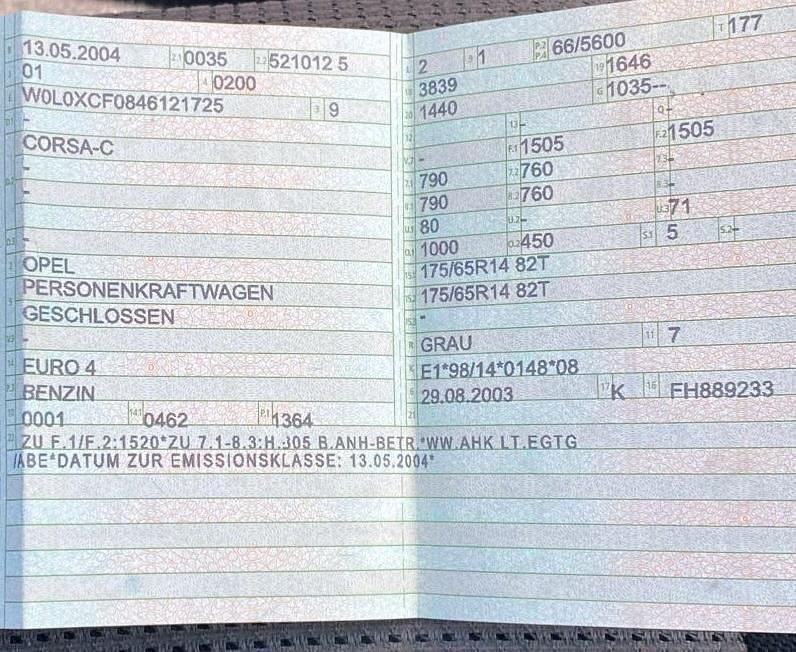 B 13.05.2004 2.1 0035 2.2 521012 5
J 01 4 0200
E W0L0XCF0846121725 3 9
D.1 -
CORSA-C
-
D.2 -
D.3 -
2 OPEL
PERSONENKRAFTWAGEN
5 GESCHLOSSEN
V.9 -
14 EURO 4
P.3 BENZIN
10 0001 14.1 0462 P.1 1364
22 ZU F.1/F.2:1520*ZU 7.1-8.3:H.305 B.ANH-BETR.*WW.AHK LT.EGTG
/ABE*DATUM ZUR EMISSIONSKLASSE: 13.05.2004*
L 2 9 1 P.2 P.4 66/5600 T 177
18 3839 19 1646
20 1440 G 1035--
12 13 - Q -
V.7 - F.1 1505 F.2 1505
7.1 790 7.2 760 7.3 -
8.1 790 8.2 760 8.3 -
U.1 80 U.2 - U.3 71
O.1 1000 O.2 450 S.1 5 S.2 -
15.1 175/65R14 82T
15.2 175/65R14 82T
15.3 -
R GRAU 11 7
K E1*98/14*0148*08
6 29.08.2003 17 K 16 FH889233
21